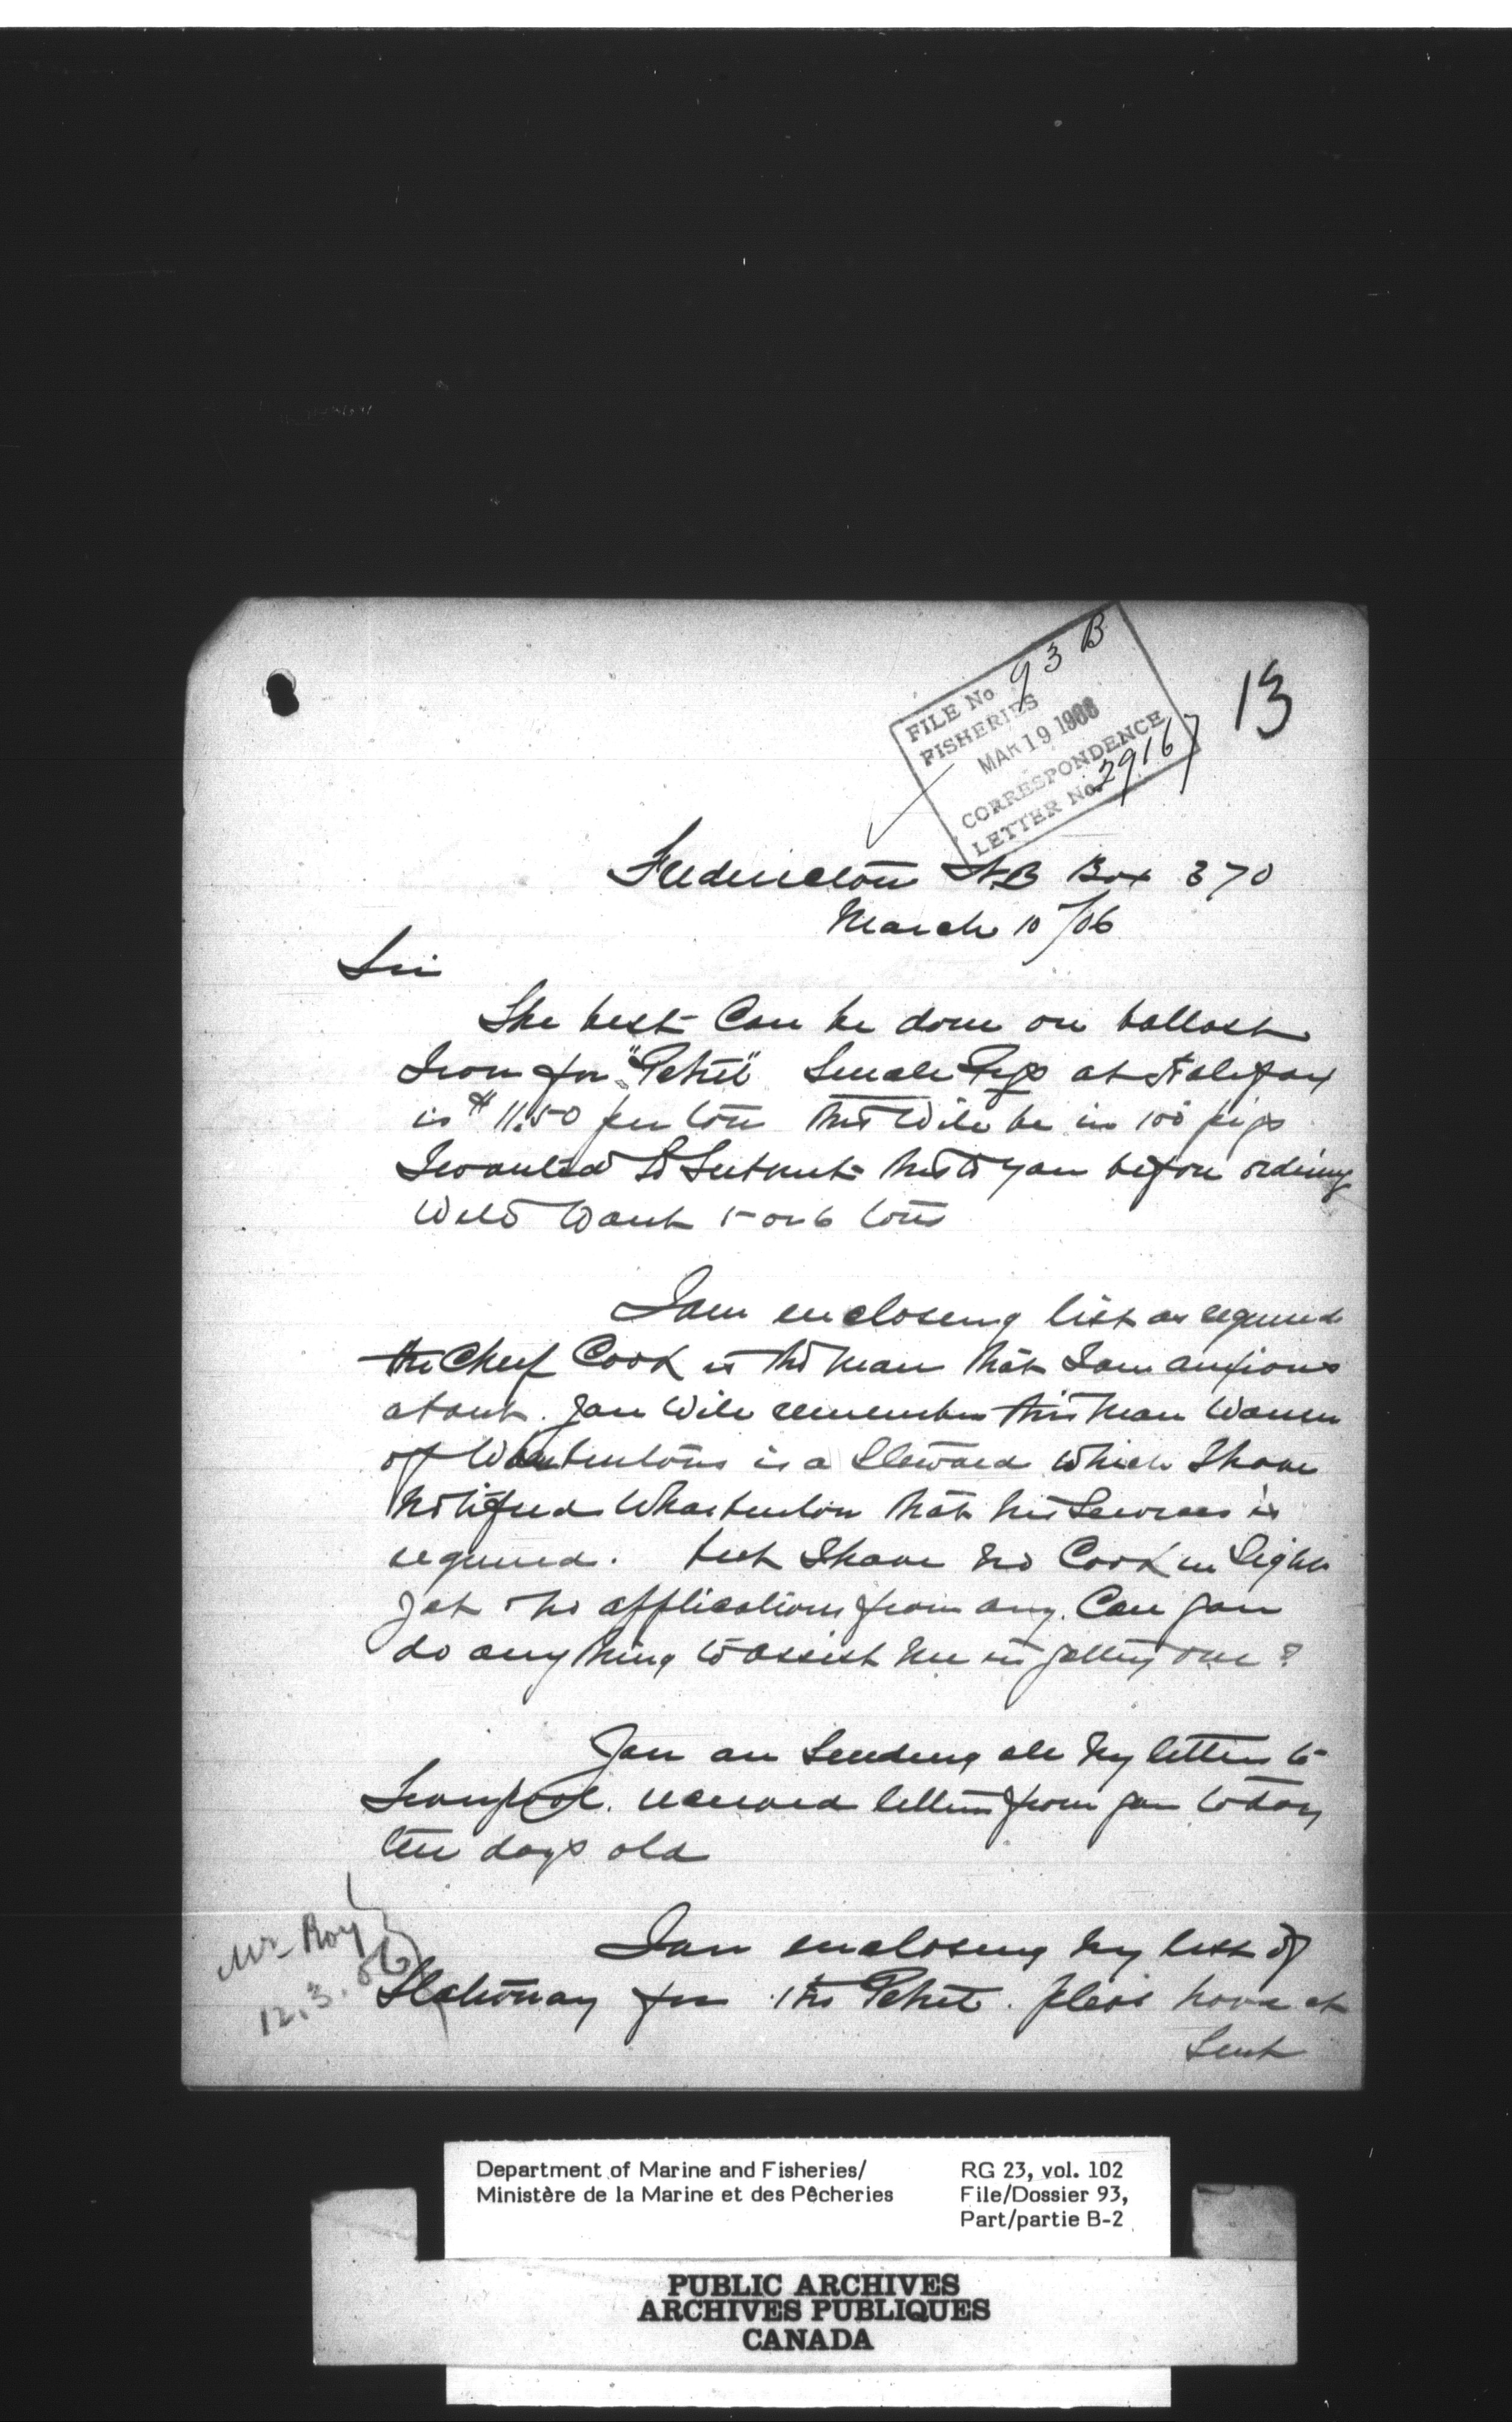 FILE No 93 B
FISHERIES
MAR 19 1906
CORRESPONDENCE
LETTER No. 29167
13
Fredericton N.B Box 370
March 10/06
Sir
The best Can be done on ballast
Iron for "Petrel" Small Pigs at Halifax
is $11.50 per ton this Will be in 100 pigs
I wanted to Submit this to you before ordering
Will Want 5 or 6 tons
I am enclosing list as required
the Chief Cook is the man that I am anxious
about. You Will remember this man
of is a Steward which I have
notified that his Services is
required. but I have no Cook in Sight
yet no applications from any. Can you
do anything to assist me in getting one?
You are Sending all my letters to
Liverpool. received letters from you today
ten days old
Mr Roy
12.3.06
I am enclosing my list of
Stationary for the Petrel. please have it
Sent
Department of Marine and Fisheries/
Ministère de la Marine et des Pêcheries
RG 23, vol. 102
File/Dossier 93,
Part/partie B-2
PUBLIC ARCHIVES
ARCHIVES PUBLIQUES
CANADA